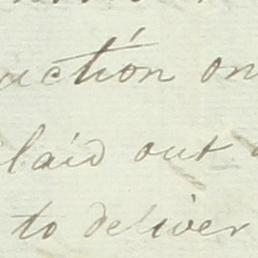 auction on
laid out
to deliver